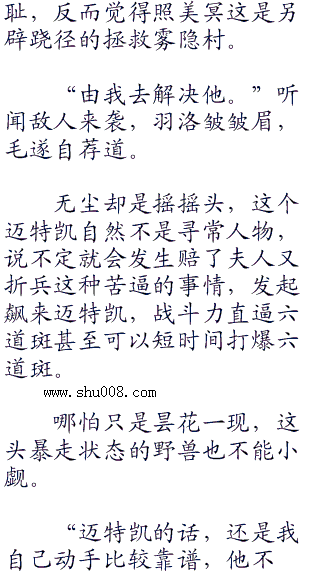 耻，反而觉得照美冥这是另
辟蹊径的拯救雾隐村。
“由我去解决他。”听
闻敌人来袭，羽洛皱皱眉，
毛遂自荐道。
无尘却是摇摇头，这个
迈特凯自然不是寻常人物，
说不定就会发生赔了夫人又
折兵这种苦逼的事情，发起
飙来迈特凯，战斗力直逼六
道斑甚至可以短时间打爆六
道斑。
www.shu008.com
哪怕只是昙花一现，这
头暴走状态的野兽也不能小
觑。
“迈特凯的话，还是我
自己动手比较靠谱，他不